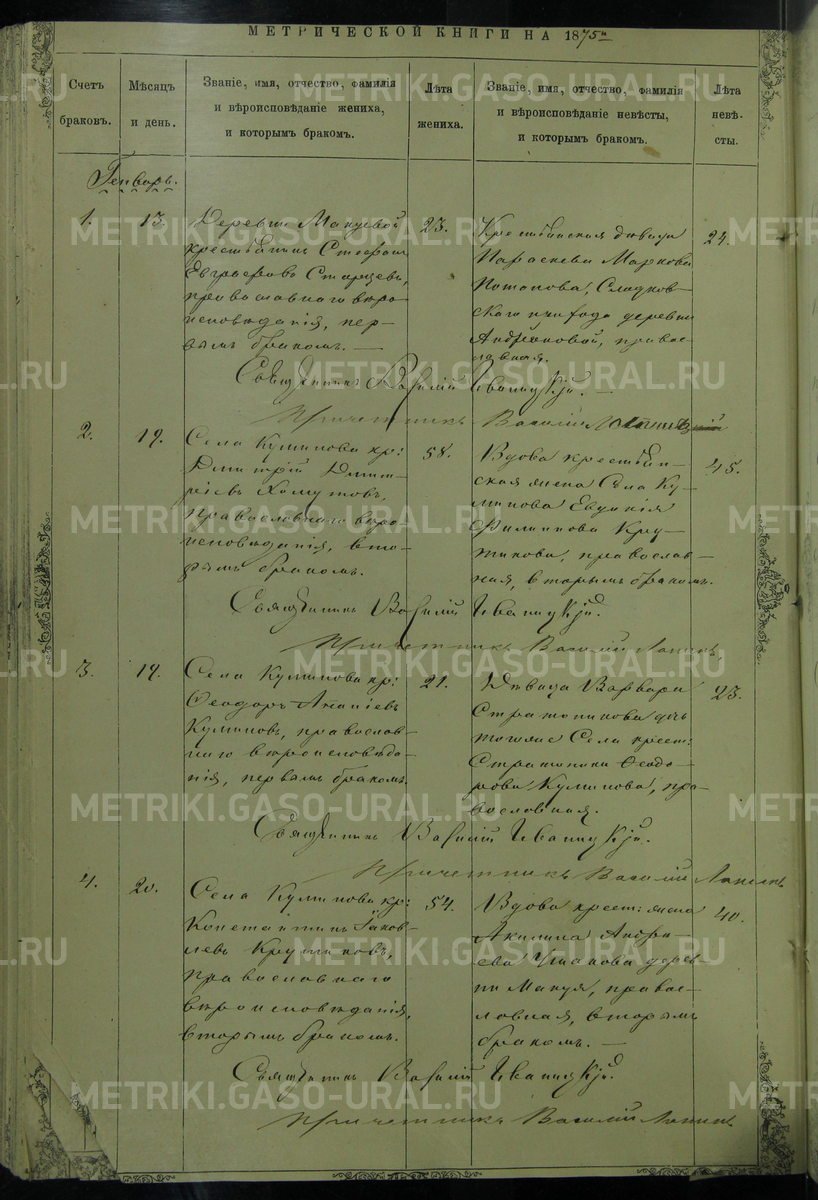 МЕТРИЧЕСКОЙ КНИГИ НА 1875
Счетъ браковъ.
Мѣсяцъ и день.
Званіе, имя, отчество, фамилія и вѣроисповѣданіе жениха, и которымъ бракомъ.
Лѣта жениха.
Званіе, имя, отчество, фамилія и вѣроисповѣданіе невѣсты, и которымъ бракомъ.
Лѣта невѣ-
сты.
Генварь.
1.
13.
Деревни Макуевой
крестьянинъ Стефанъ
Евграфовъ Старцевъ,
православнаго вѣро-
исповѣданія, пер-
вымъ бракомъ. —
23.
Крестьянская дѣвица
Параскева Маркова
Потапова, Сладков-
скаго прихода деревни
Андроновой, правос-
лавная.
24.
Священникъ Василій Иваницкій. —
Причетникъ Василій
2.
19.
Села Куминова кр:
Димитрій Димит-
ріевъ Хомутовъ,
православнаго вѣро-
исповѣданія, вто-
рымъ бракомъ.
58.
Вдова крестьян-
ская жена Села Ку-
минова Евдокія
Филиппова Кру-
тикова, православ-
ная, вторымъ бракомъ.
45.
Священникъ Василій Иваницкій.
Причетникъ Василій
3.
19.
Села Куминова кр:
Ѳеодоръ
Куминовъ, православ-
наго вѣроисповѣда-
нія, первымъ бракомъ.
21.
Дѣвица Варвара
Стратоникова дочь
тогоже Села крест:
Стратоника Ѳеодо-
рова Куминова, пра-
вославная.
23.
Священникъ Василій Иваницкій.
Причетникъ Василій
4.
20.
Села Куминова кр:
Константинъ Іаков-
левъ Крутиковъ,
православнаго
вѣроисповѣданія,
вторымъ бракомъ.
54.
Вдова крест: жена
Акилина Андре-
ева Ушакова дерев-
ни Макуя, правос-
лавная, вторымъ
бракомъ. —
40.
Священникъ Василій Иваницкій.
Причетникъ Василій
METRIKI.GASO-URAL.RU